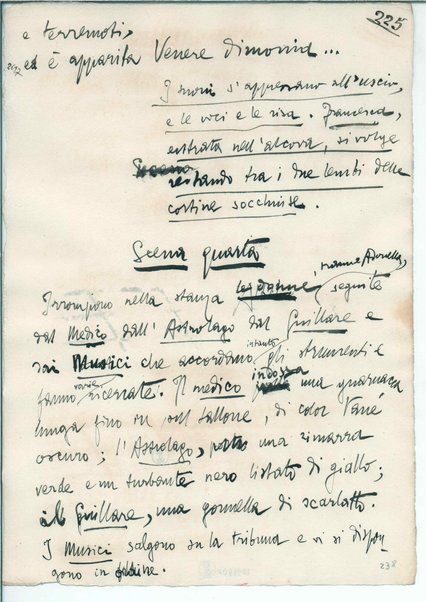 225
e terremoti,
2047 ed è apparita Venere dimonia...
I suoni s'appressano all'uscio,
e le voci e le risa. Francesca,
entrata nell'alcova, si volge
restando tra i due lembi delle
cortine socchiuse.
Scena quarta
Irrompono nella stanza le donne, tranne Adonella, seguite
dal Medico dall'Astrologo dal Giullare e
dai Musici che accordano intanto gli strumenti e
fanno varie ricercate. Il medico indossa una guarnacca
lunga fino in sul tallone, di color
oscuro; l'Astrologo, porta una zimarra
verde e un turbante nero listato di giallo;
il Giullare, una gonnella di scarlatto.
I Musici salgono su la tribuna e vi si dispon
gono in ordine.
238